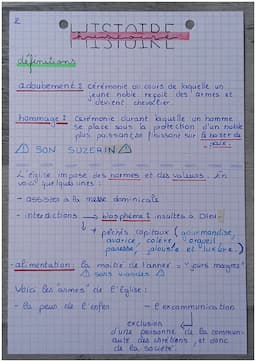 2
HISTOIRE
histoire
définitions
adoubement : cérémonie au cours de laquelle un
jeune noble reçoit des armes et
devient chevalier
hommage : cérémonie durant laquelle un homme
se place sous la protection d'un noble
plus puissant finissant sur le baiser de
paix.
⚠ SON SUZERIN ⚠
L'Église impose des normes et des valeurs. En
voici quelques unes :
- assister à la messe dominicale
- interdictions → blasphème : insultes à Dieu
→ péchés capitaux (gourmandise,
avarice, colère, orgueil,
paresse, jalousie et luxure.)
- alimentation : la moitié de l'année = "jours maigres"
⚠ sans viandes ⚠
Voici les "armes" de l'Église :
- la peur de l'enfer
- l'excommunication
exclusion
d'une personne de la commun-
auté des chrétiens, et donc
de la société